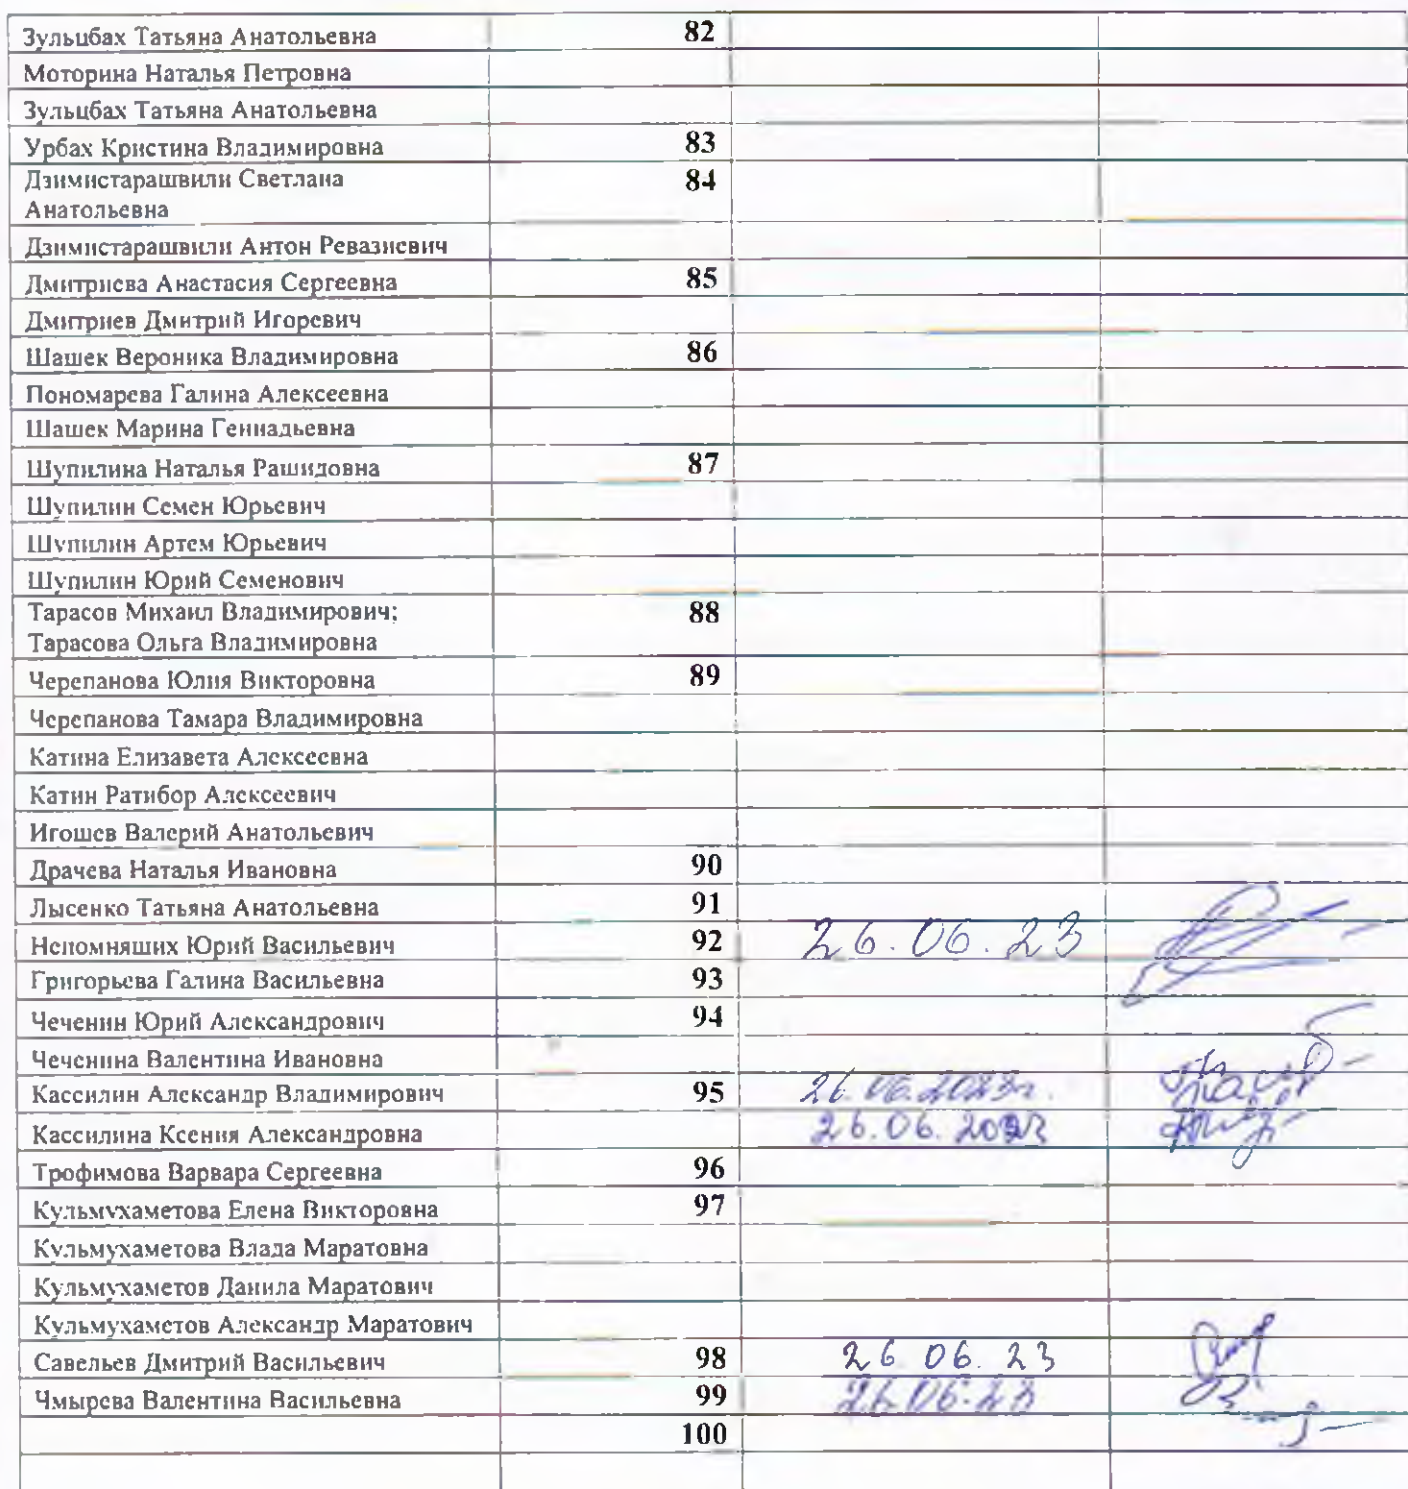 Зульцбах Татьяна Анатольевна 82
Моторина Наталья Петровна
Зульцбах Татьяна Анатольевна
Урбах Кристина Владимировна 83
Дзимистарашвили Светлана 84
Анатольевна
Дзимистарашвили Антон Ревазиевич
Дмитриева Анастасия Сергеевна 85
Дмитриев Дмитрий Игоревич
Шашек Вероника Владимировна 86
Пономарева Галина Алексеевна
Шашек Марина Геннадьевна
Шупилина Наталья Рашидовна 87
Шупилин Семен Юрьевич
Шупилин Артем Юрьевич
Шупилин Юрий Семенович
Тарасов Михаил Владимирович; 88
Тарасова Ольга Владимировна
Черепанова Юлия Викторовна 89
Черепанова Тамара Владимировна
Катина Елизавета Алексеевна
Катин Ратибор Алексеевич
Игошев Валерий Анатольевич
Драчева Наталья Ивановна 90
Лысенко Татьяна Анатольевна 91
Непомняших Юрий Васильевич 92 26.06.23
Григорьева Галина Васильевна 93
Чеченин Юрий Александрович 94
Чеченина Валентина Ивановна
Кассилин Александр Владимирович 95 26.06.2023г.
Кассилина Ксения Александровна 26.06.2023
Трофимова Варвара Сергеевна 96
Кульмухаметова Елена Викторовна 97
Кульмухаметова Влада Маратовна
Кульмухаметов Данила Маратович
Кульмухаметов Александр Маратович
Савельев Дмитрий Васильевич 98 26 06. 23
Чмырева Валентина Васильевна 99 26.06.23
100